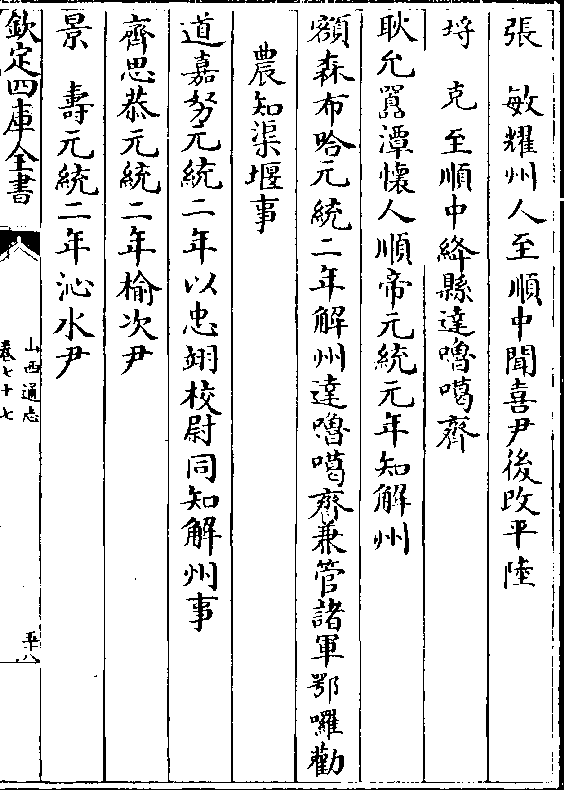 張　敏耀州人至順中聞喜尹後改平陸
埒　克至順中絳縣達嚕噶齊
耿允嚚潭懷人順帝元統元年知解州
額森布哈元統二年解州達嚕噶齊兼管諸軍鄂囉勸
農知渠堰事
道嘉努元統二年以忠翊校尉同知解州事
齊思恭元統二年榆次尹
景　壽元統二年沁水尹
欽定四庫全書
山西通志
卷七十七